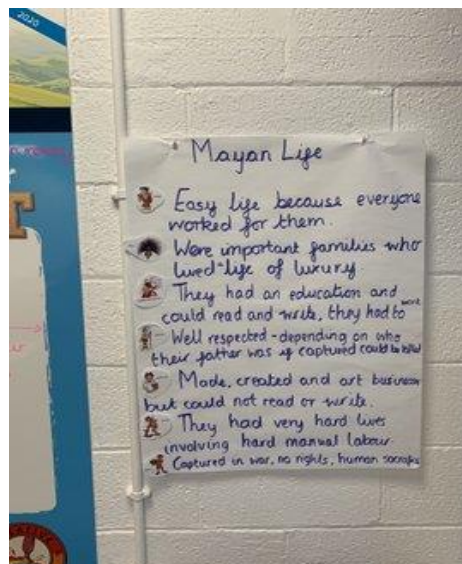 2020
Mayan Life
Easy life because everyone
worked for them.
Were important families who
lived life of luxury
They had an education and
could read and write, they had to work
Well respected - depending on who
their father was if captured could be killed
Made, created and art business
but could not read or write.
They had very hard lives
involving hard manual labour.
Captured in war, no rights, human